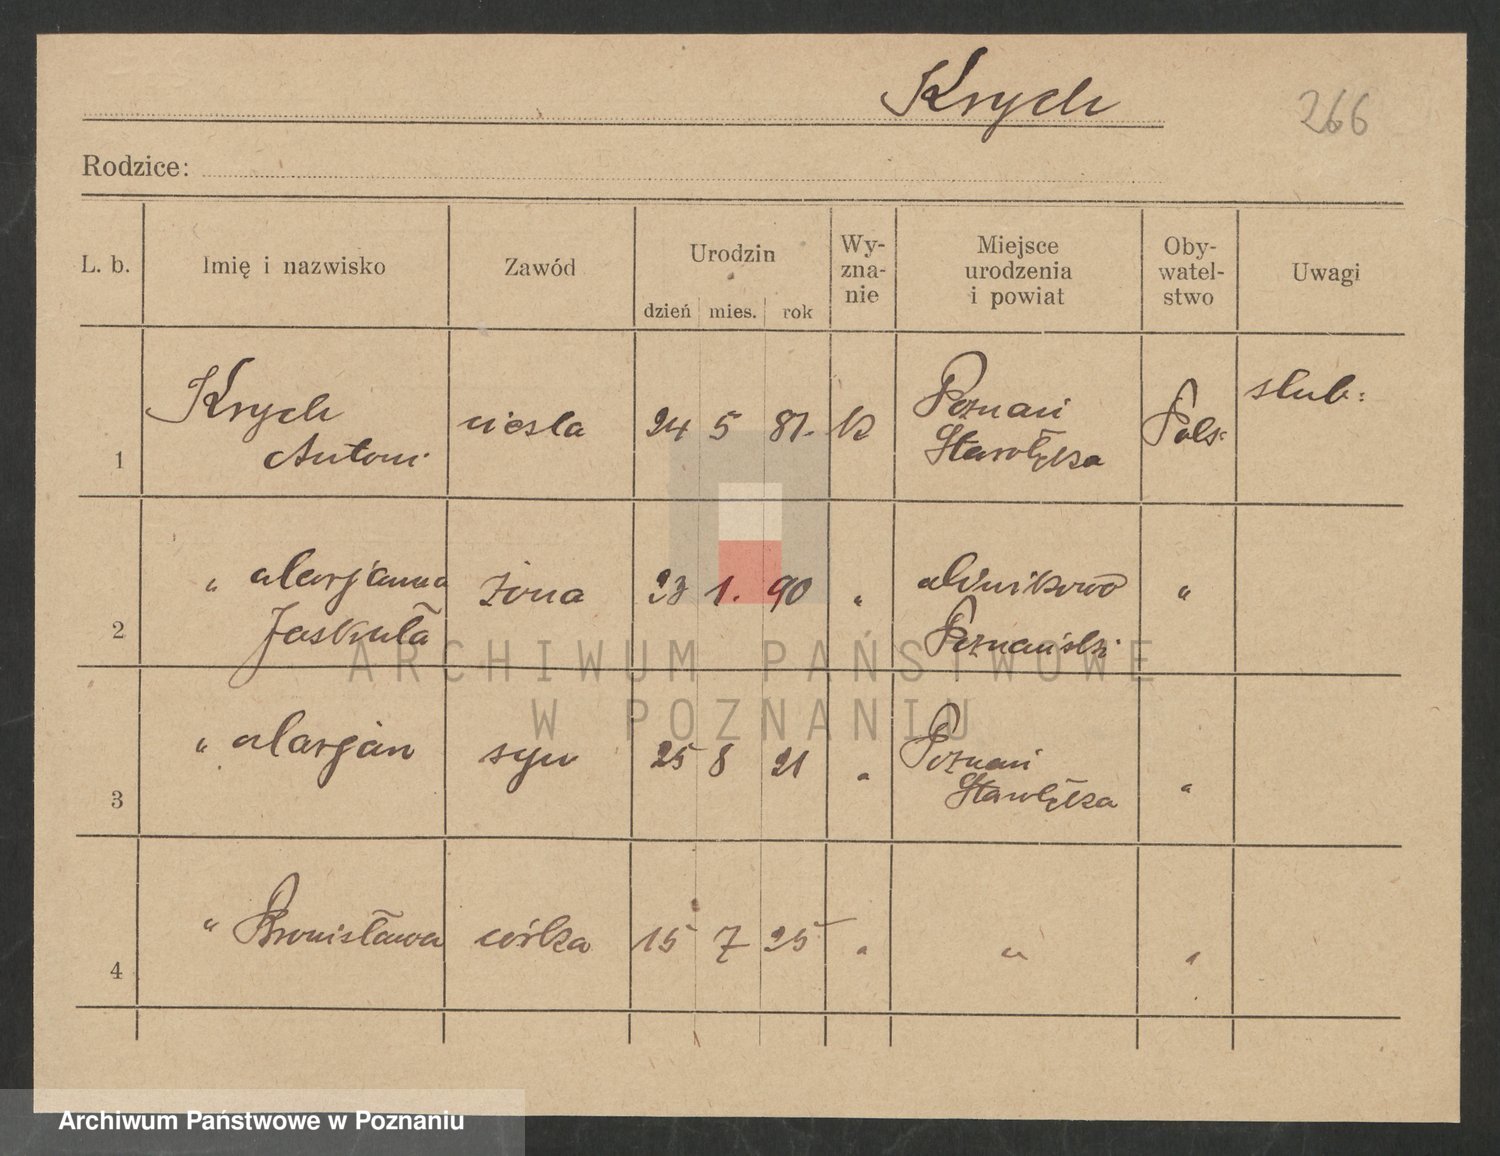 Krych
266
Rodzice:
L. b.
Imię i nazwisko
Zawód
Urodzin
dzień mies. rok
Wy-
zna-
nie
Miejsce
urodzenia
i powiat
Oby-
watel-
stwo
Uwagi
1
Krych
Antoni
cieśla
24 5 87.
k
Poznań
Starołęka
Pols:
slub:
2
" Marjanna
Jaskuła
żona
23 1. 90
"
Minikowo
Poznański
"
3
" Marjan
syn
25 8 21
"
Poznań
Starołęka
"
4
" Bronisława
córka
15 7 25
"
"
"
ARCHIWUM PAŃSTWOWE
W POZNANIU
Archiwum Państwowe w Poznaniu